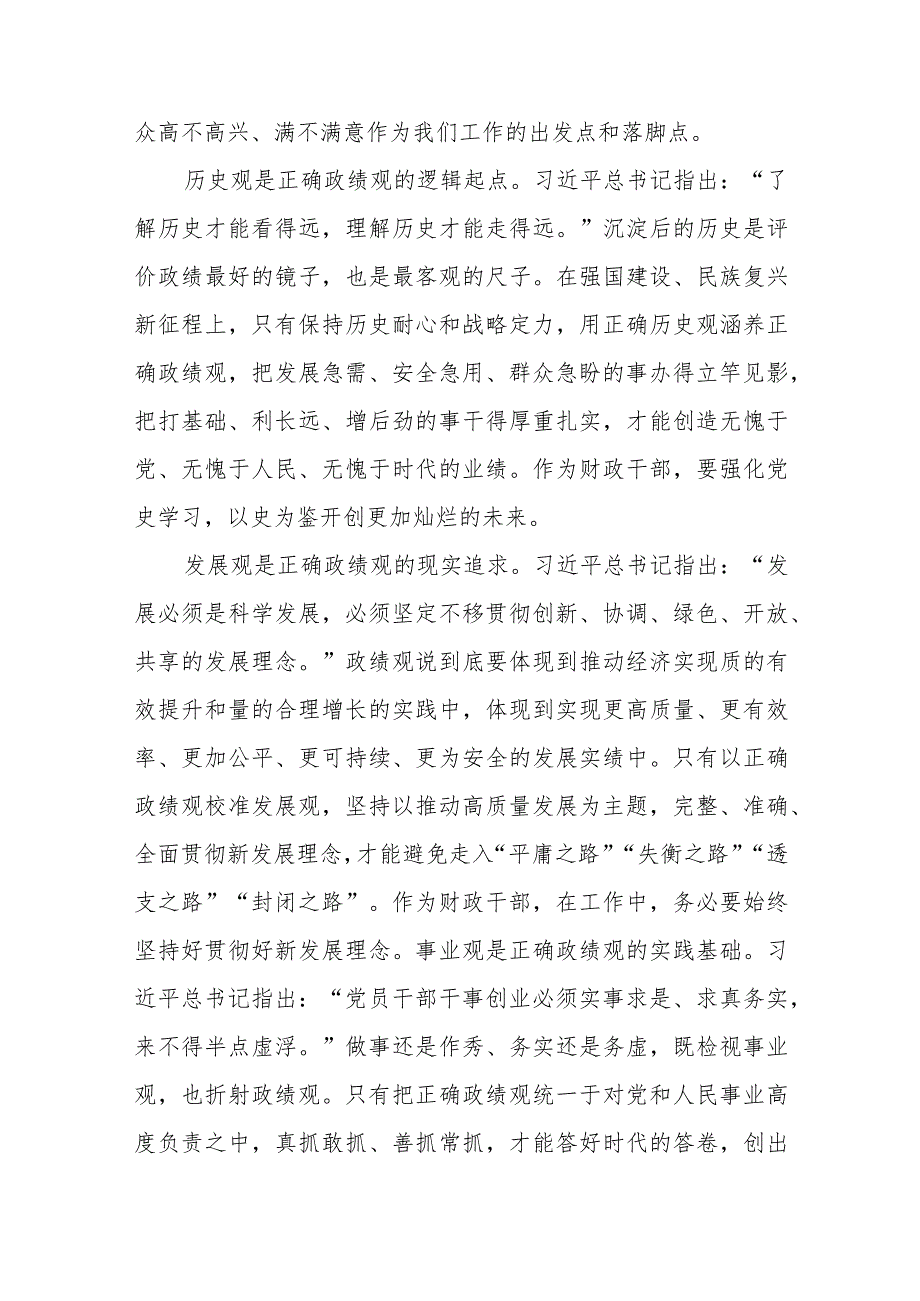 众高不高兴、满不满意作为我们工作的出发点和落脚点。
历史观是正确政绩观的逻辑起点。习近平总书记指出：“了
解历史才能看得远，理解历史才能走得远。”沉淀后的历史是评
价政绩最好的镜子，也是最客观的尺子。在强国建设、民族复兴
新征程上，只有保持历史耐心和战略定力，用正确历史观涵养正
确政绩观，把发展急需、安全急用、群众急盼的事办得立竿见影，
把打基础、利长远、增后劲的事干得厚重扎实，才能创造无愧于
党、无愧于人民、无愧于时代的业绩。作为财政干部，要强化党
史学习，以史为鉴开创更加灿烂的未来。
发展观是正确政绩观的现实追求。习近平总书记指出：“发
展必须是科学发展，必须坚定不移贯彻创新、协调、绿色、开放、
共享的发展理念。”政绩观说到底要体现到推动经济实现质的有
效提升和量的合理增长的实践中，体现到实现更高质量、更有效
率、更加公平、更可持续、更为安全的发展实绩中。只有以正确
政绩观校准发展观，坚持以推动高质量发展为主题，完整、准确、
全面贯彻新发展理念，才能避免走入“平庸之路”“失衡之路”“透
支之路”“封闭之路”。作为财政干部，在工作中，务必要始终
坚持好贯彻好新发展理念。事业观是正确政绩观的实践基础。习
近平总书记指出：“党员干部干事创业必须实事求是、求真务实，
来不得半点虚浮。”做事还是作秀、务实还是务虚，既检视事业
观，也折射政绩观。只有把正确政绩观统一于对党和人民事业高
度负责之中，真抓敢抓、善抓常抓，才能答好时代的答卷，创出